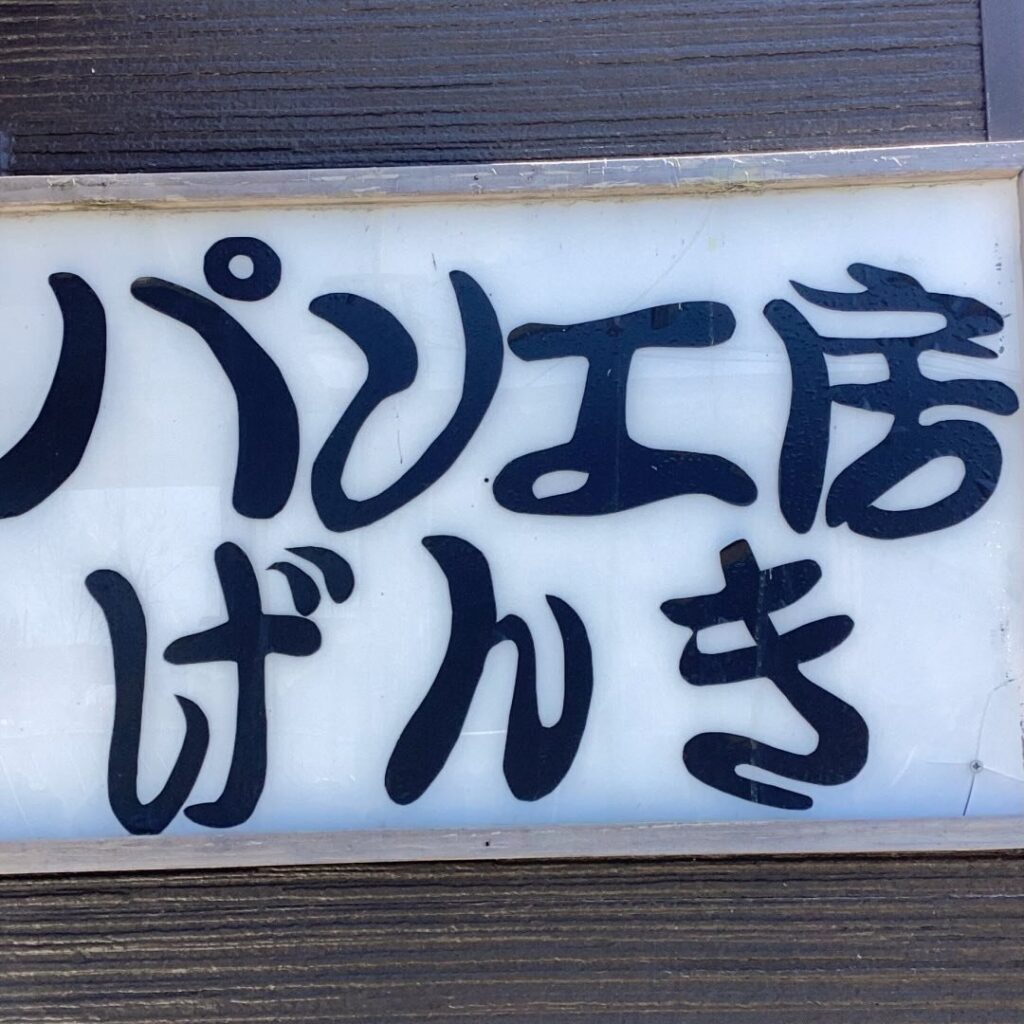 パン工房
げんき